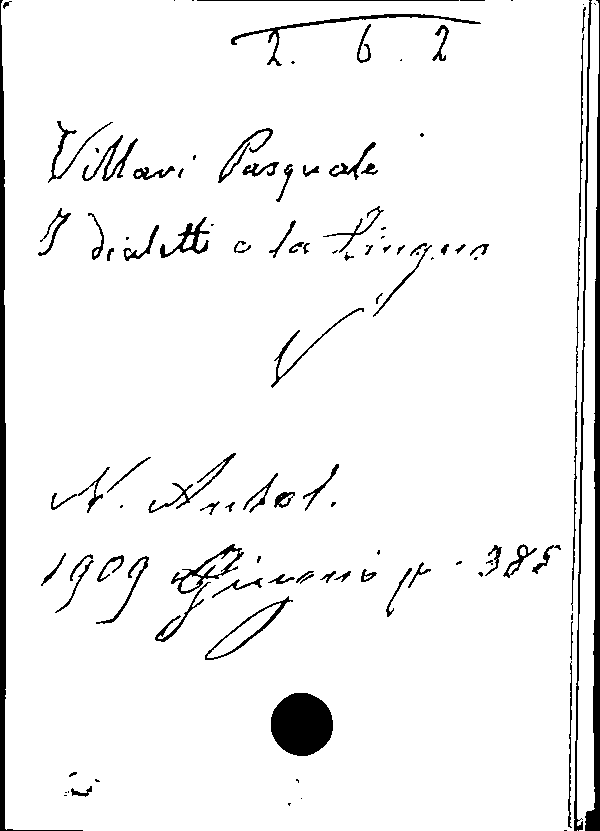 2. 6. 2
Villari Pasquale
I dialetti e la lingua
N. Antol.
1909 Giugno p. 385